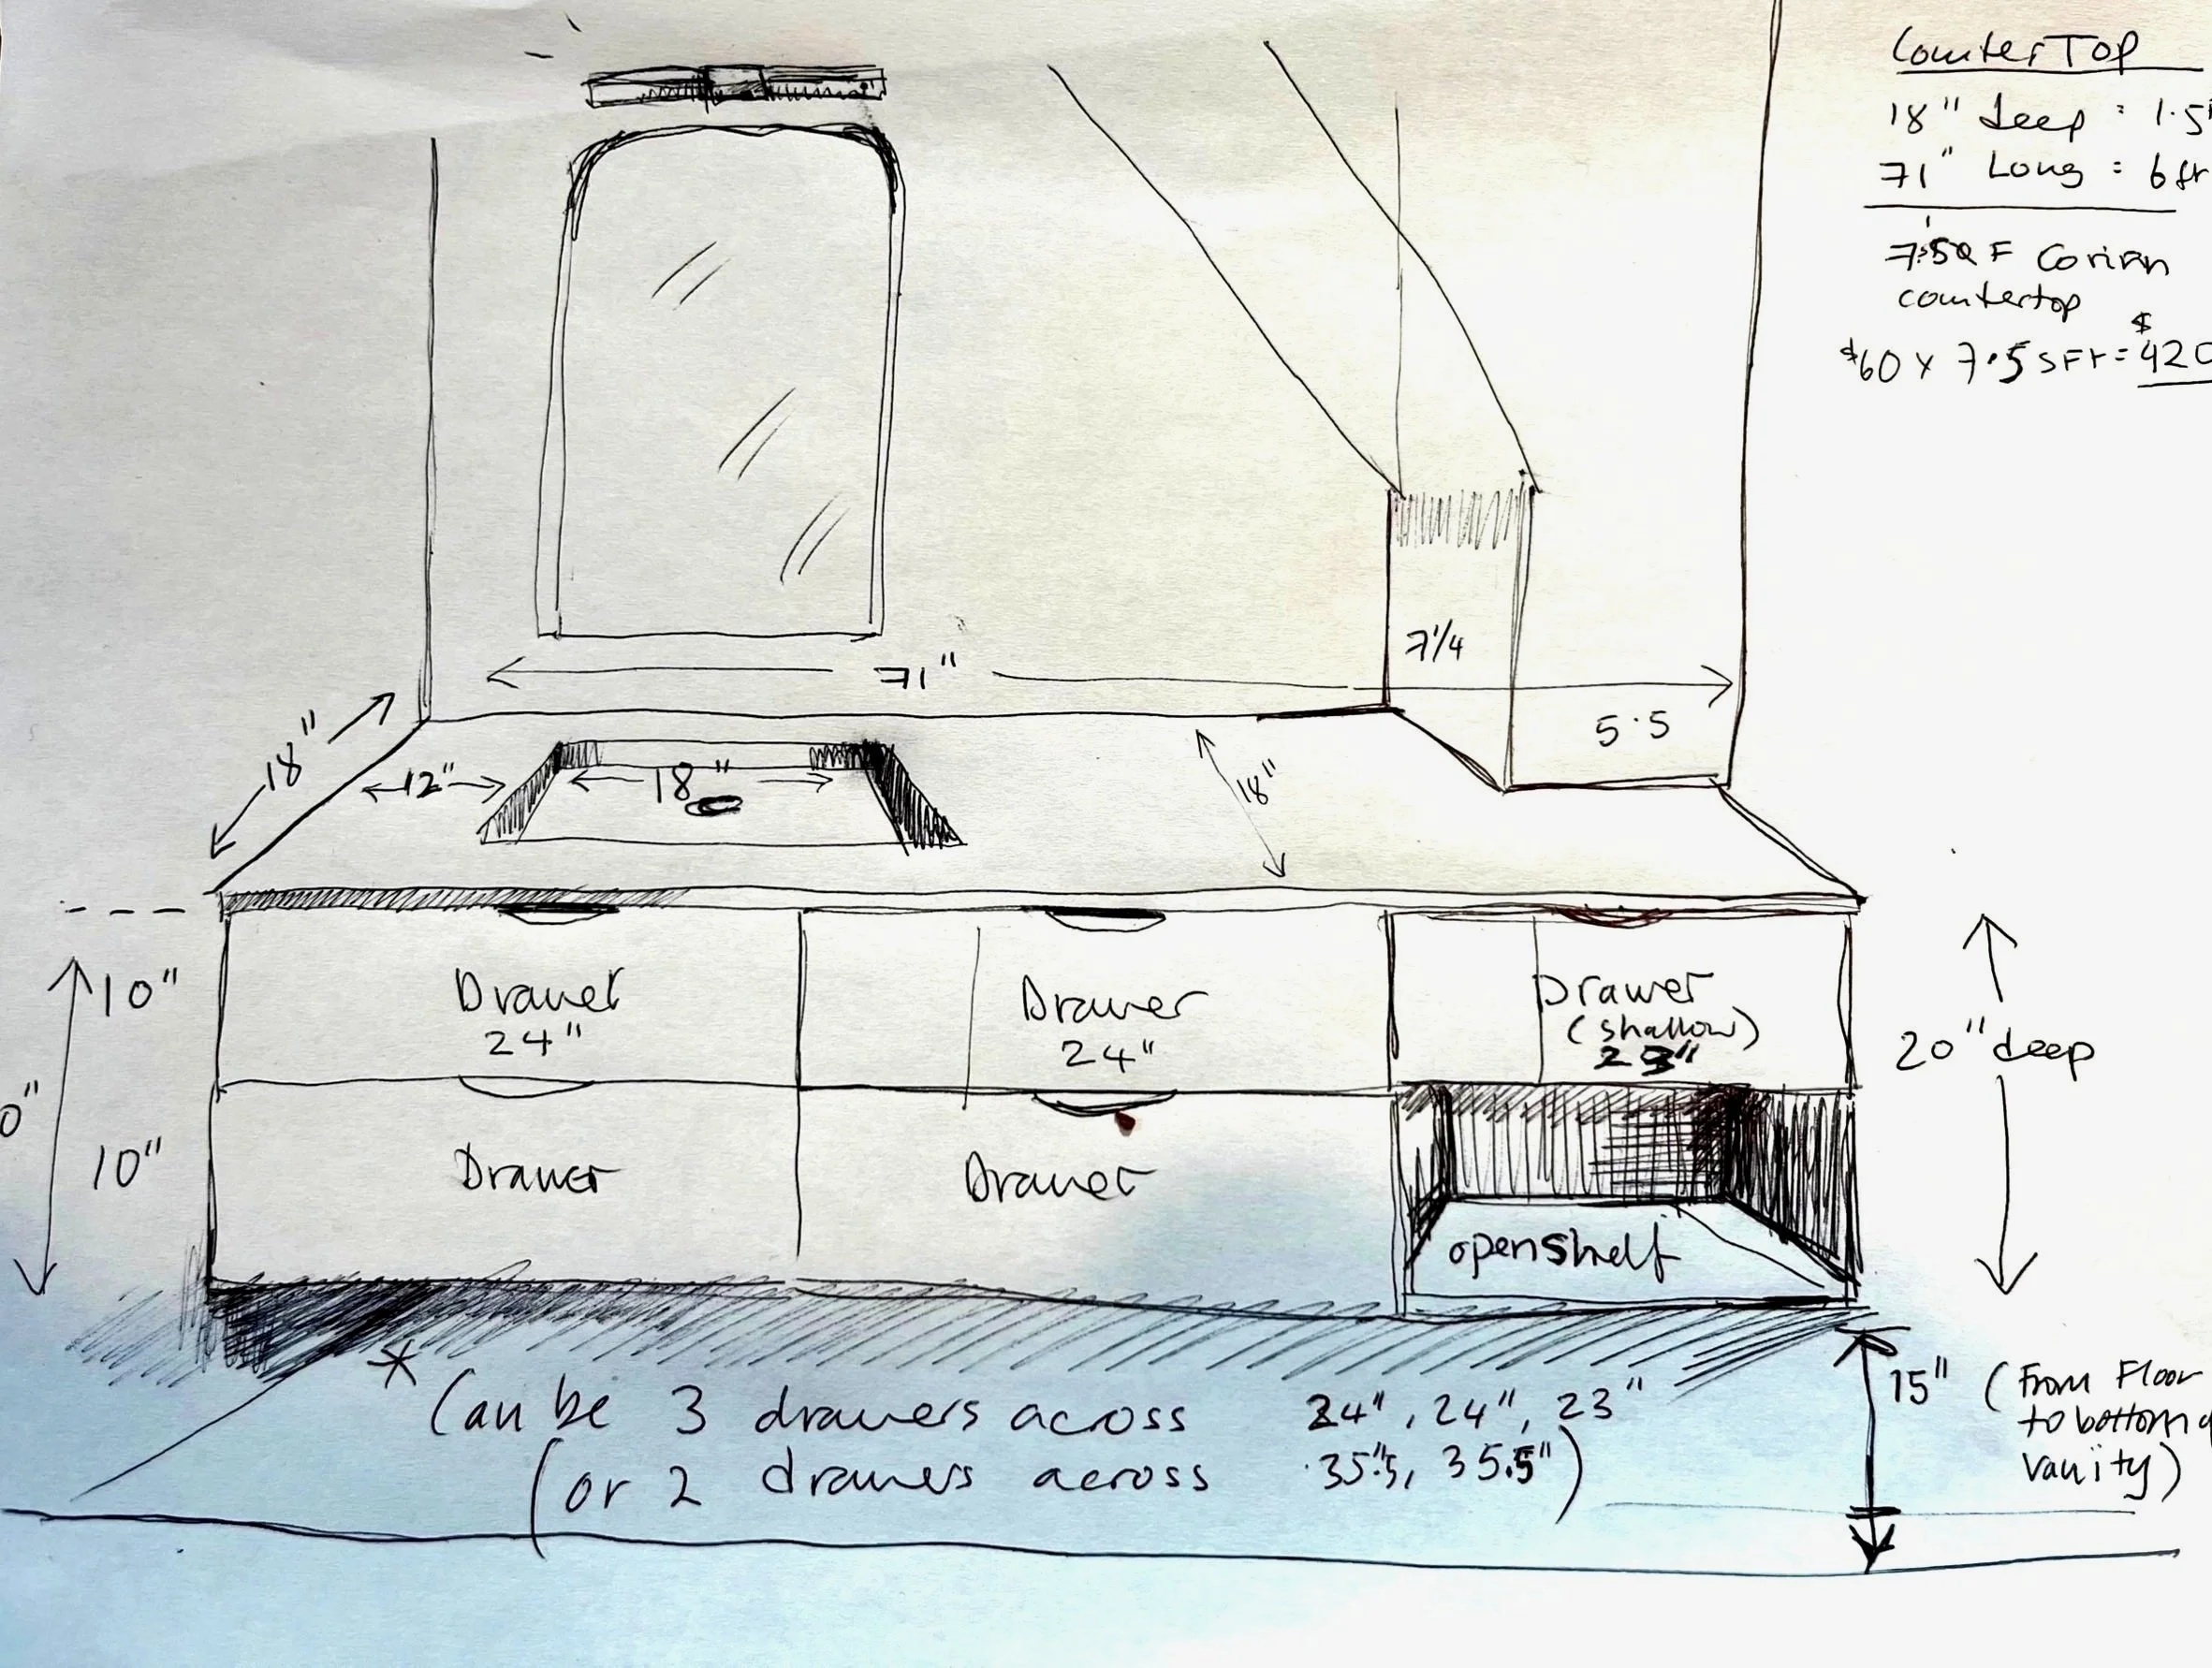 CounterTop
18" deep : 1.5
71" Long : 6 ft
7.5Q F Corian
countertop
$60 x 7.5 SFT = $420
71"
7 1/4
5.5
18"
12"
18"
18"
10"
Drawer
24"
Drawer
24"
Drawer
(shallow)
23"
20" deep
0"
10"
Drawer
Drawer
openshelf
* Can be 3 drawers across 24", 24", 23"
(or 2 drawers across 35.5", 35.5")
15" (From Floor
to bottom
vanity)